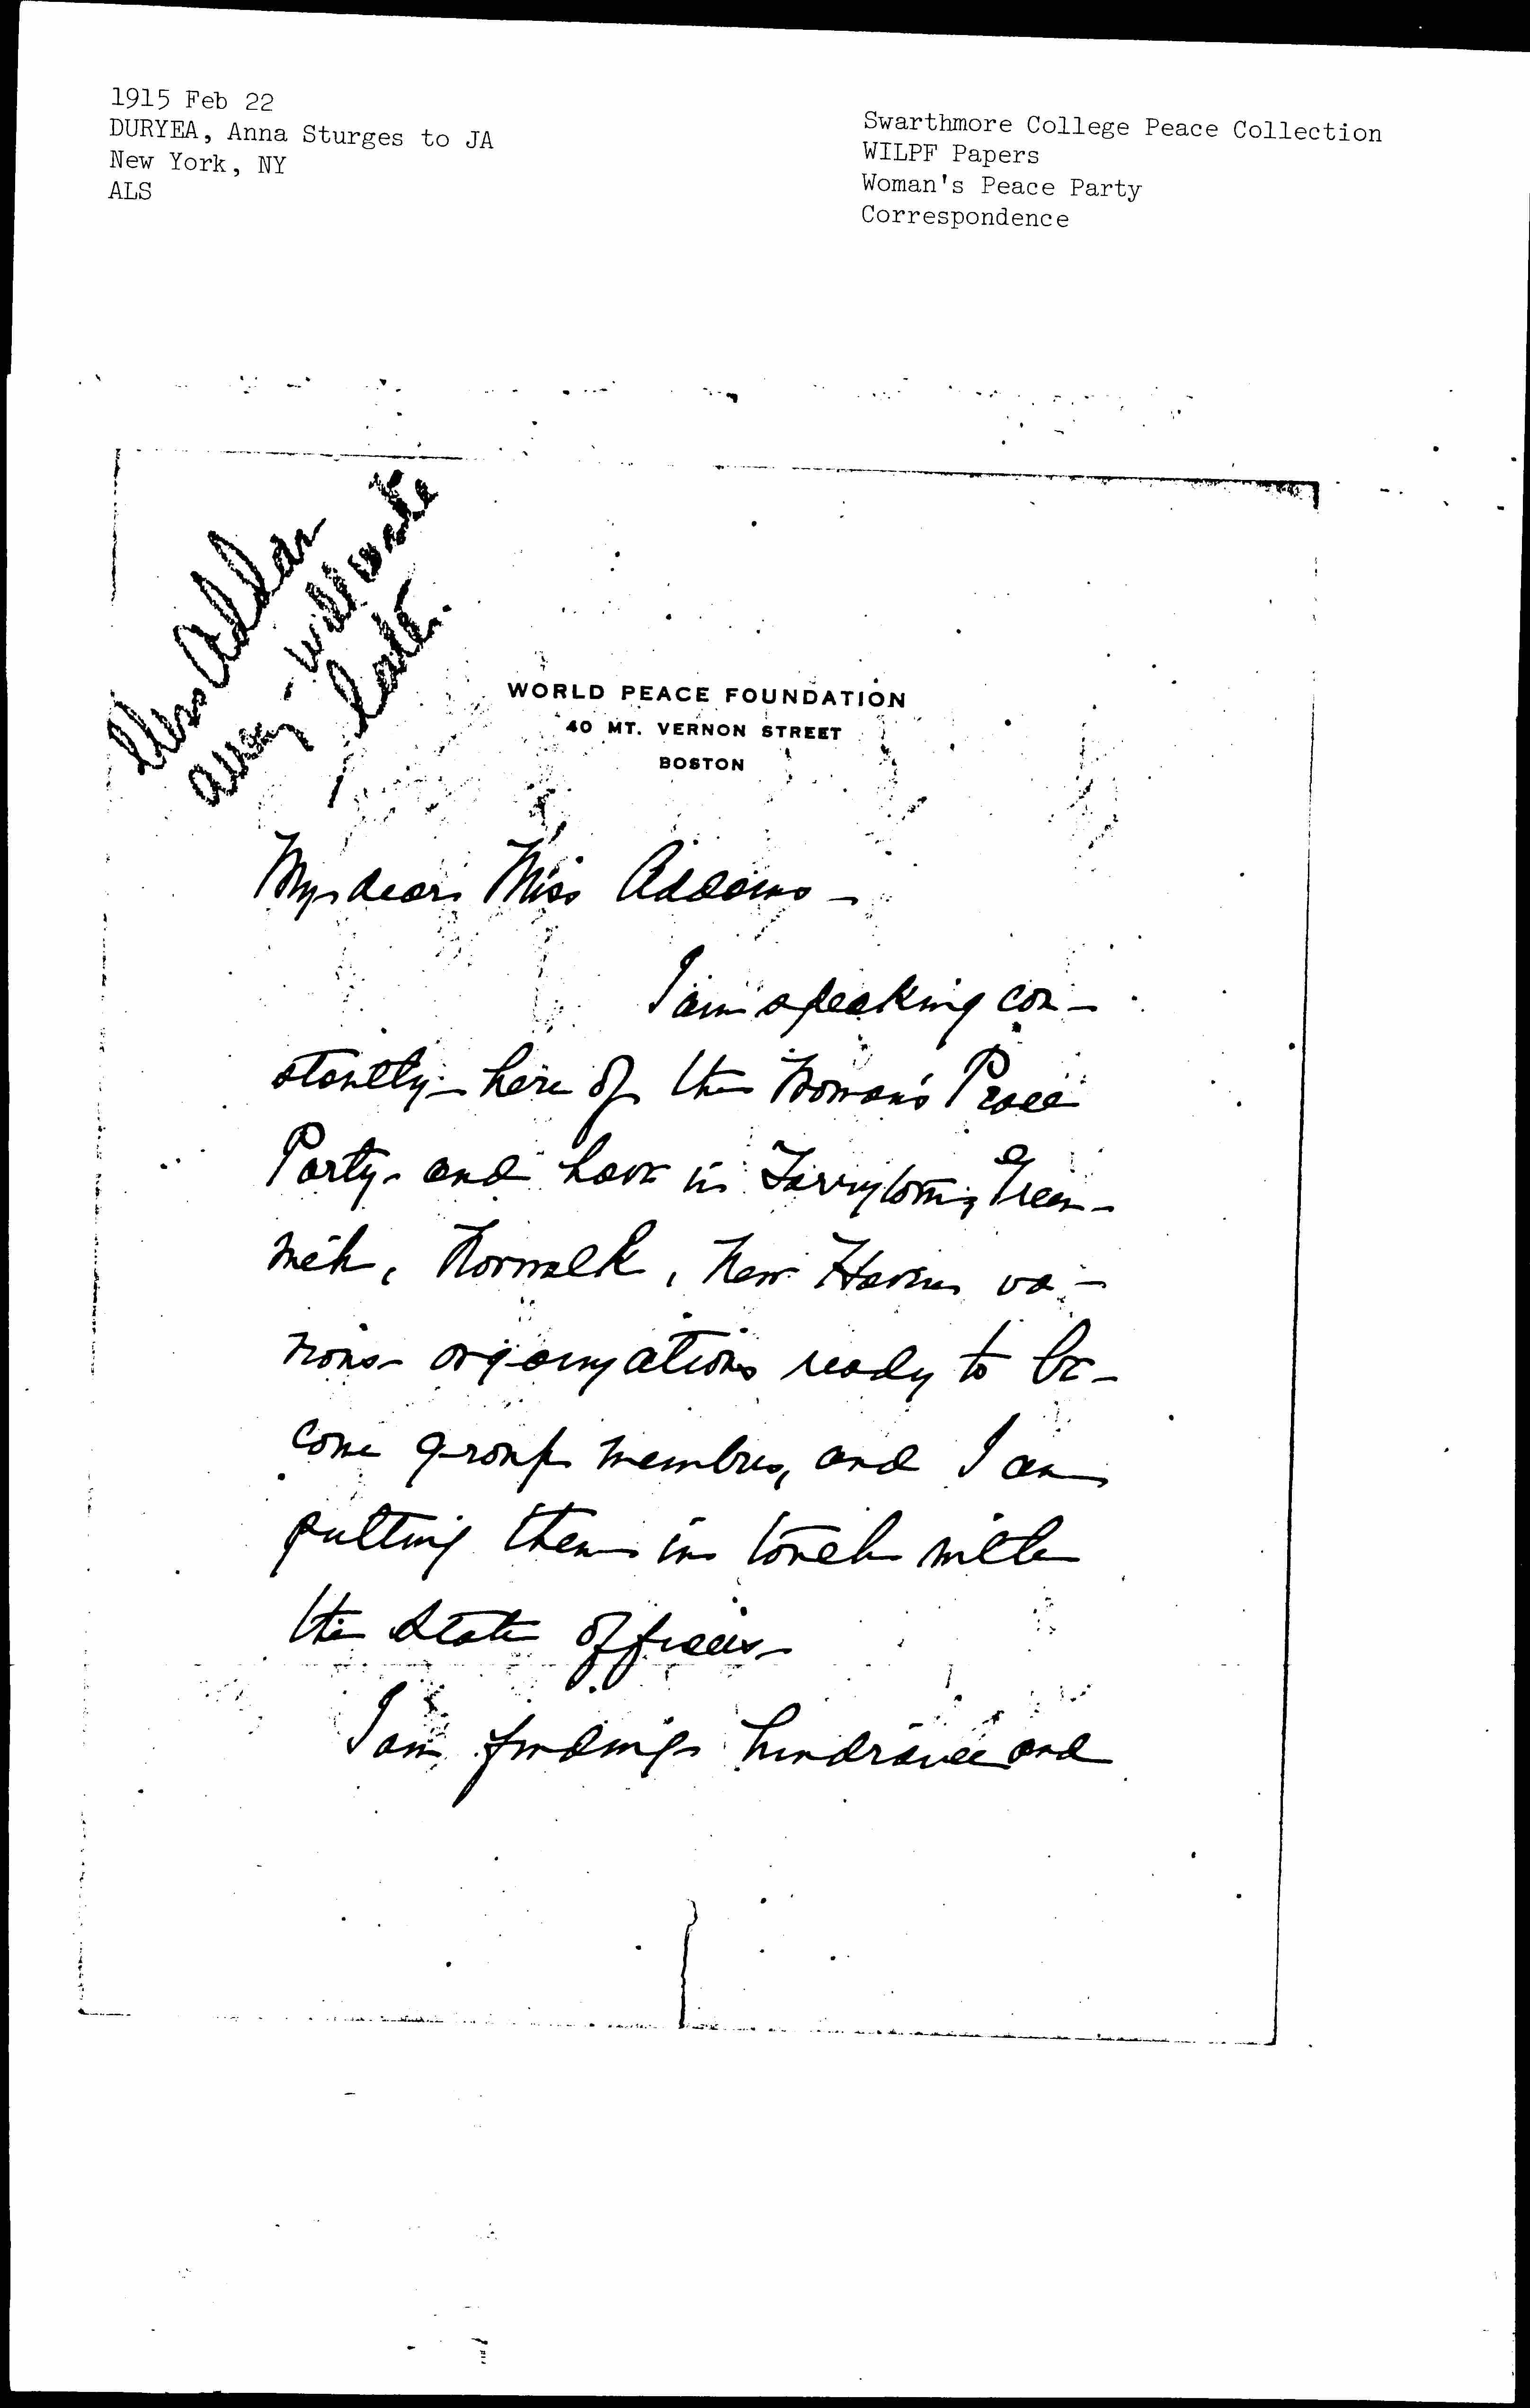 1915 Feb 22
DURYEA, Anna Sturges to JA
New York, NY
ALS
Swarthmore College Peace Collection
WILPF Papers
Woman's Peace Party
Correspondence
Miss Addams
away - will write
later.
WORLD PEACE FOUNDATION
40 MT. VERNON STREET
BOSTON
My dear Miss Addams -
I am speaking con-
stantly here of the Woman's Peace
Party - and have in Tarrytown, Green-
wich, Norwalk, New Haven va-
rious organizations ready to be-
come group members, and I am
putting them in touch with
the State officers -
I am finding hindrance and